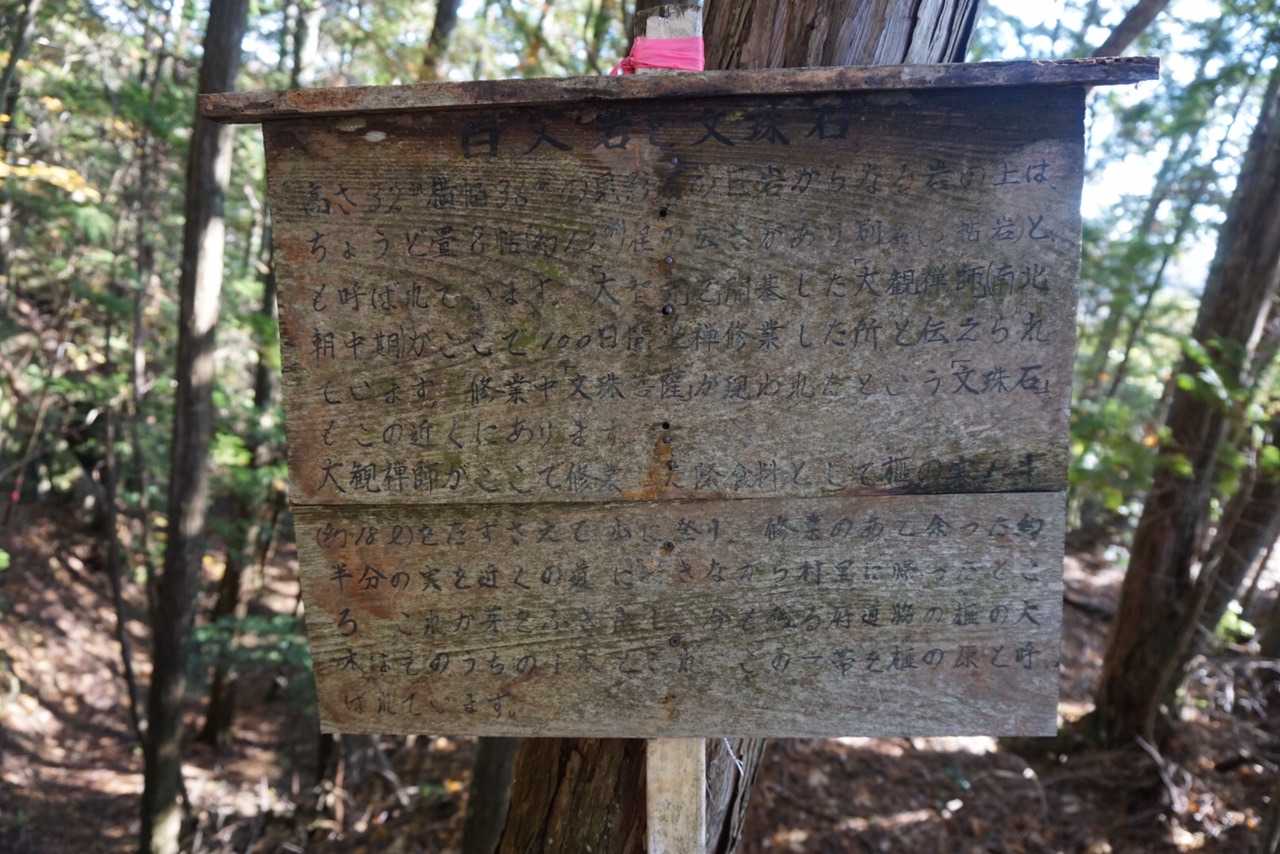 百丈岩と文珠石
高さ32m横幅38mの 巨岩からなる岩の上は、
ちょうど畳8帖(約13㎡)程の広さがあり 岩)と
も呼ばれています。「大 」を開基した「大観禅師(南北
朝中期)がここで100日間 禅修業した所と伝えられ
ています。修業中「文珠菩薩」が現われたという「文珠石」
もこの近くにあります
大観禅師がここで修業した際食料として榧の実
をたずさえて 登り、修業のあと余った約
半分の実を近くの なから村里に帰ったとこ
ろ これが芽を し 今も 府道脇の榧の大
木はそのうちの1本と この一帯を榧の原と呼
ばれています。